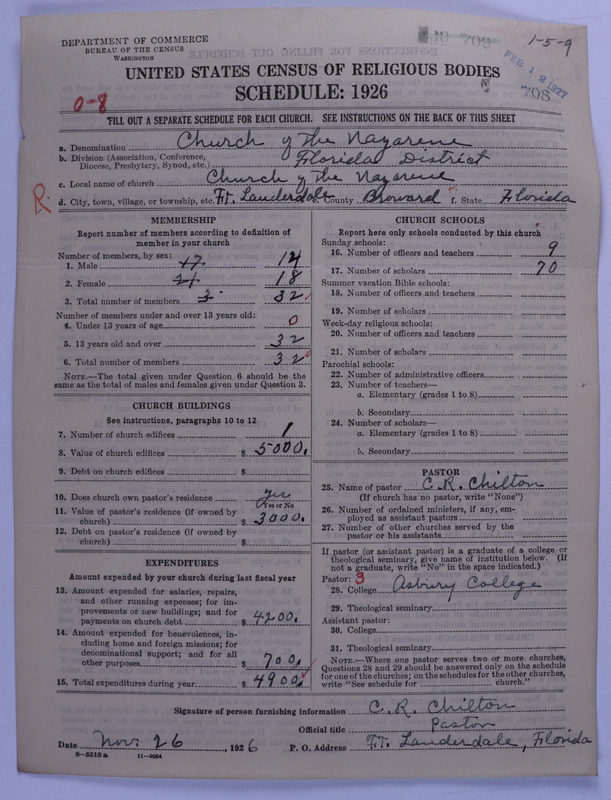 DEPARTMENT OF COMMERCE
BUREAU OF THE CENSUS
WASHINGTON
1-5-9
FEB 12 1927
708
0-8
UNITED STATES CENSUS OF RELIGIOUS BODIES
SCHEDULE: 1926
FILL OUT A SEPARATE SCHEDULE FOR EACH CHURCH. SEE INSTRUCTIONS ON THE BACK OF THIS SHEET
a. Denomination Church of The Nazarene
b. Division (Association, Conference, Diocese, Presbytery, Synod, etc.) Florida District
c. Local name of church Church of The Nazarene
R. d. City, town, village, or township, etc. Ft. Lauderdale e. County Broward f. State Florida
MEMBERSHIP
Report number of members according to definition of
member in your church
Number of members, by sex:
1. Male 17 14
2. Female 21 18
3. Total number of members 3 32
Number of members under and over 13 years old:
4. Under 13 years of age 0
5. 13 years old and over 32
6. Total number of members 32
NOTE.—The total given under Question 6 should be
same as the total of males and females given under Question 3.
CHURCH BUILDINGS
See instructions, paragraphs 10 to 12
7. Number of church edifices 1
8. Value of church edifices $ 5000.
9. Debt on church edifices $
10. Does church own pastor's residence yes
Yes or No
11. Value of pastor's residence (if owned by
church) $ 3000.
12. Debt on pastor's residence (if owned by
church) $
EXPENDITURES
Amount expended by your church during last fiscal year
13. Amount expended for salaries, repairs,
and other running expenses; for im-
provements or new buildings; and for
payments on church debt $ 4200.
14. Amount expended for benevolences, in-
cluding home and foreign missions; for
denominational support; and for all
other purposes $ 700.
15. Total expenditures during year $ 4900
CHURCH SCHOOLS
Report here only schools conducted by this church
Sunday schools:
16. Number of officers and teachers 9
17. Number of scholars 70
Summer vacation Bible schools:
18. Number of officers and teachers
19. Number of scholars
Week-day religious schools:
20. Number of officers and teachers
21. Number of scholars
Parochial schools:
22. Number of administrative officers
23. Number of teachers—
a. Elementary (grades 1 to 8)
b. Secondary
24. Number of scholars—
a. Elementary (grades 1 to 8)
b. Secondary
PASTOR
25. Name of pastor C. R. Chilton
(If church has no pastor, write "None")
26. Number of ordained ministers, if any, em-
ployed as assistant pastors
27. Number of other churches served by the
pastor or his assistants
If pastor (or assistant pastor) is a graduate of a college or
theological seminary, give name of institution below. (If
not a graduate, write "No" in the space indicated.)
Pastor: 3
28. College Asbury College
29. Theological seminary
Assistant pastor:
30. College
31. Theological seminary
NOTE.—Where one pastor serves two or more churches,
Questions 28 and 29 should be answered only on the schedule
for one of the churches; on the schedules for the other churches,
write "See schedule for church."
Signature of person furnishing information C. R. Chilton
Official title Pastor
Date Nov. 26 1926 P. O. Address Ft. Lauderdale, Florida
8-5518a 11-9084